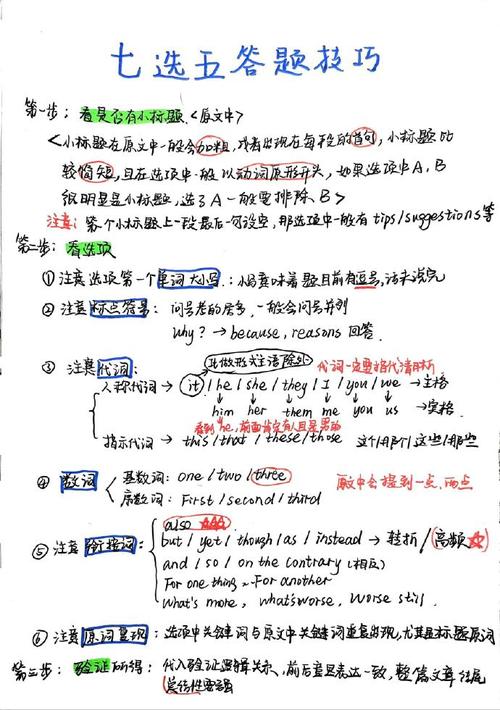 七选五答题技巧
第一步：看是否有小标题.<原文中>
<小标题在原文中一般会加粗，或者出现在每段的首句，小标题比
较简短，且在选项中一般以动词原形开头，如果选项中A,B
很明显是小标题，选了A一般要排除.B>
注意：第一个小标题上一段最后一句设空，那选项中一般有tips/suggestions等
第二步：看选项
①注意选项第一个单词大小写：小写意味着题目前有逗号，话未说完
②注意标点符号：问号考的居多，一般会问号并列
why?→because, reasons 回答.
it做形式主语除外
③注意代词：代词一定要指代清晰
人称代词→it/he/she/they/I/you/we→主格
him her them me you us→宾格
看到he,前面肯定有人且是男的
指示代词→this/that/these/those 这个/那个/这些/那些
④数词
基数词：one/two/three
序数词：First/second/third
原文中会提到一点、两点
also
⑤注意衔接词：but/yet/though/as/instead→转折/高频
and/so/on the contrary(相反)
For one thing~For another
What's more, what'sworse, Worse still.
⑥注意原词重现：选项中关键词与原文中关键词重复出现，尤其是标题原词
第三步：验证所得：代入验证逻辑关系，前后意思表达一致，整篇文章结尾
总结性要强